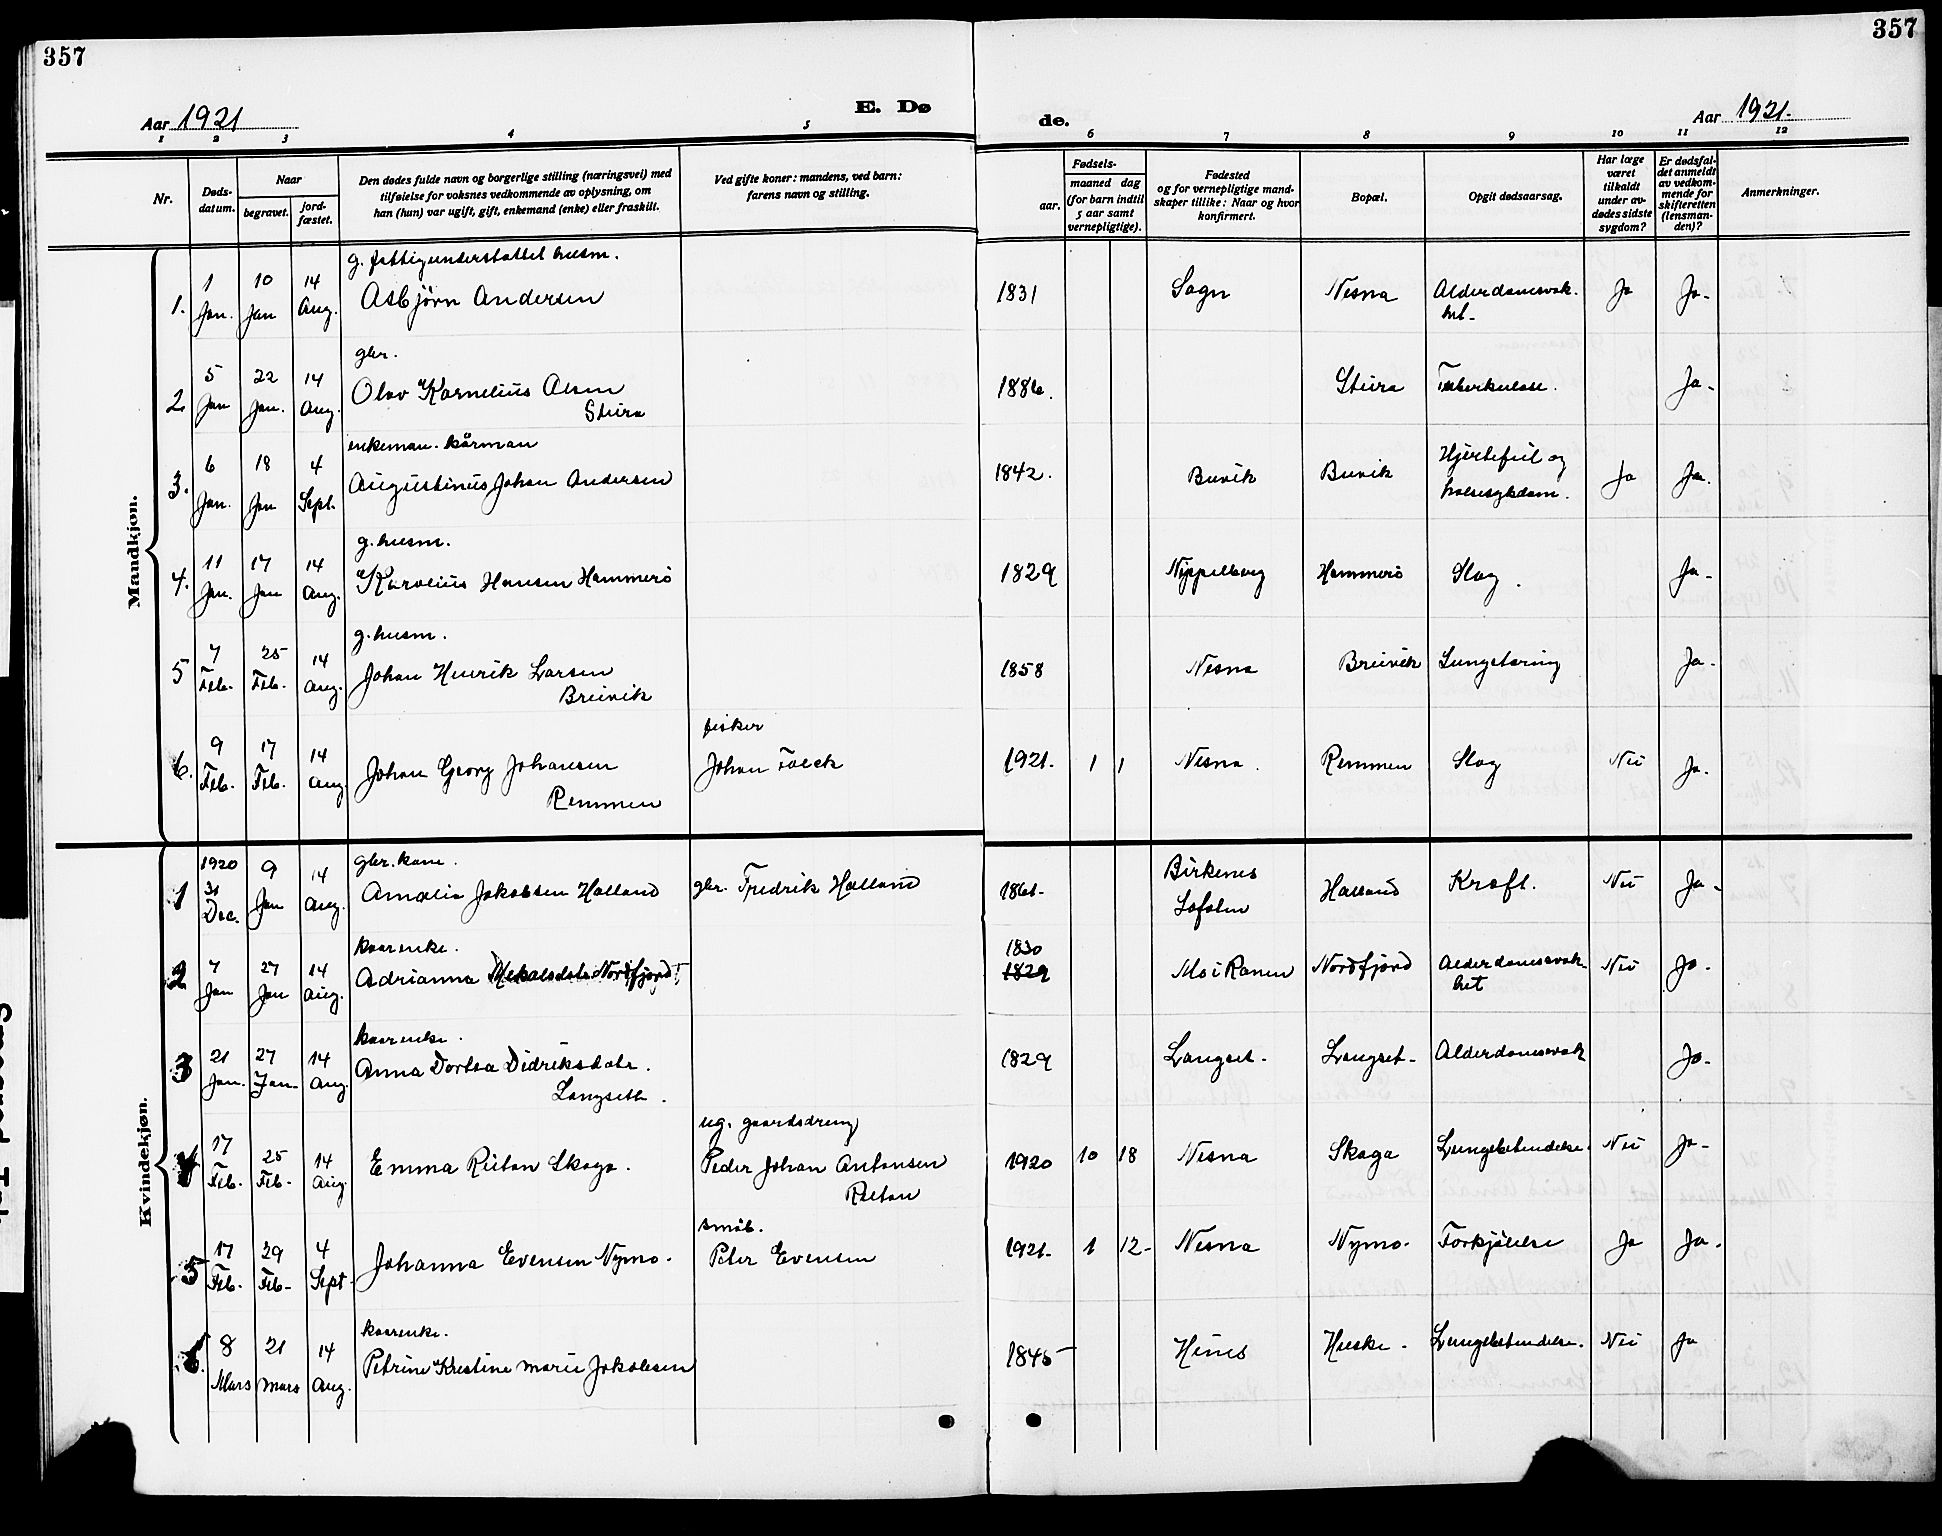 357
357
Aar 1921
E. Dø
de.
Aar 1921.
1 2 3 4 5 6 7 8 9 10 11 12
Nr.
Døds-
datum.
Naar
begravet.
jord-
fæstet.
Den dødes fulde navn og borgerlige stilling (næringsvei) med
tilføielse for voksnes vedkommende av oplysning, om
han (hun) var ugift, gift, enkemand (enke) eller fraskilt.
Ved gifte koner: mandens, ved barn:
farens navn og stilling.
Fødsels-
aar.
maaned dag
(for barn indtil
5 aar samt
vernepligtige).
Fødested
og for vernepligtige mand-
skaper tillike: Naar og hvor
konfirmert.
Bopæl.
Opgit dødsaarsag.
Har læge
været
tilkaldt
under av-
dødes sidste
sygdom?
Er dødsfal-
det anmeldt
av vedkom-
mende for
skifteretten
(lensman-
den)?
Anmerkninger.
Mandkjøn.
g. fattigunderstøttet husm.
1. 1 Jan. 10 Jan 14 Aug. Asbjörn Andersen 1831 Sogn Nesna Alderdomssvak-
het- Ja Ja-
gbr.
2 5 Jan 22 Jan. 14 Aug. Olav Kornelius Olsen 1886. Steira Tuberkulose. Ja-
Steira
enkeman. kårman
3. 6 Jan. 18 Jan 4 Sept. Augustinus Johan Andersen 1842. Buvik Buvik Hjertefeil og
halssygdom. Ja Ja.
g. husm.
4. 11 Jan. 17 Jan 14 Aug. Karolius Hansen Hammerö 1829 Nyppelberg Hammerö Slag. Ja-
g. husm.
5 7 Feb. 25 Feb. 14 Aug. Johan Henrik Larsen 1858 Nesna Breivik Lungetæring Ja-
Breivik
fisker
6. 9 Feb. 17 Feb. 14 Aug. Johan Georg Johansen Johan Falck 1921. 1 1 Nesna. Remmen Slag Nei Ja.
Remmen
Kvindekjøn.
gbr. kone.
1 1920 31 Dec. 9 Jan 14 Aug. Amalie Jakobsen Halland gbr. Fredrik Halland 1861. Birkenes
Lofoten Halland Kræft. Nei Ja-
kaarenke.
2 7 Jan 27 Jan 14 Aug. Adrianna Nordfjord 1830
1829 Mo i Ranen Nordfjord Alderdomssvak-
het Nei Ja.
kaarenke.
3 21 Jan. 27 Jan- 14 Aug. Anna Dortea Didriksdatr. 1829 Langset. Langset- Alderdomssvak Ja.
Langseth.
ug. gaardsdreng
4 17 Feb. 25 Feb- 14 Aug. Emma Reitan Skoga. Peder Johan Antonsen 1920 10 18 Nesna Skaga Lungebetendelse. Nei Ja-
Reitan
småb.
5 17 Feb. 29 Feb- 4 Sept- Johanna Evensen Nymo. Peter Evensen 1921. 1 12- Nesna Nymo. Forkjölelse Ja Ja.
kaarenke.
6. 8 Mars 21 Mars 14 Aug. Petrine Kristine Marie Jakobsen 1845 Hines Huske. Lungebetendelse. Nei Ja